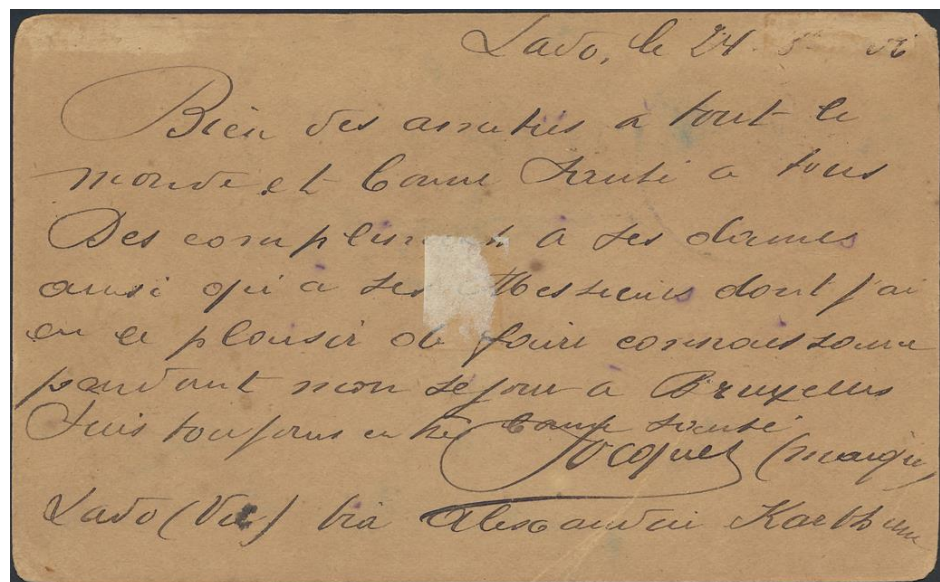 Lado, le 24
Bien des amitiés à tout le
monde et bonne Santé a tous
Des complim a ses dames
ausi qu'a ses Messieurs dont j'ai
eu le plaisir de faire connaissance
pendant mon sejour a Bruxelles
Suis toujours en bonne santé
Jocquet
Lado (Via) via Alexandrie Karthum